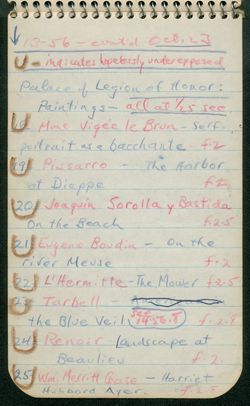 13-56 - cont'd Oct. 23
U - indicates hopelessly underexposed
Palace of Legion of Honor:
Paintings - all at 1/25 sec
Mme Vigée le Brun - Self-
portrait as a Bacchante f.2
19 Pissarro - The Harbor
at Dieppe f.2
20 Joaquin Sorolla y Bastida
On the Beach f.2.5
21 Eugene Boudin - On the
river Meuse f.2
22 L'Hermitte - The Mower f2.5
23 Tarbell -
the Blue Veil see 14-56.8 f.2.8
24 Renoir Landscape at
Beaulieu f.2.
25 Wm. Merritt Chase - Harriet
Hubbard Ayer. f.2.8